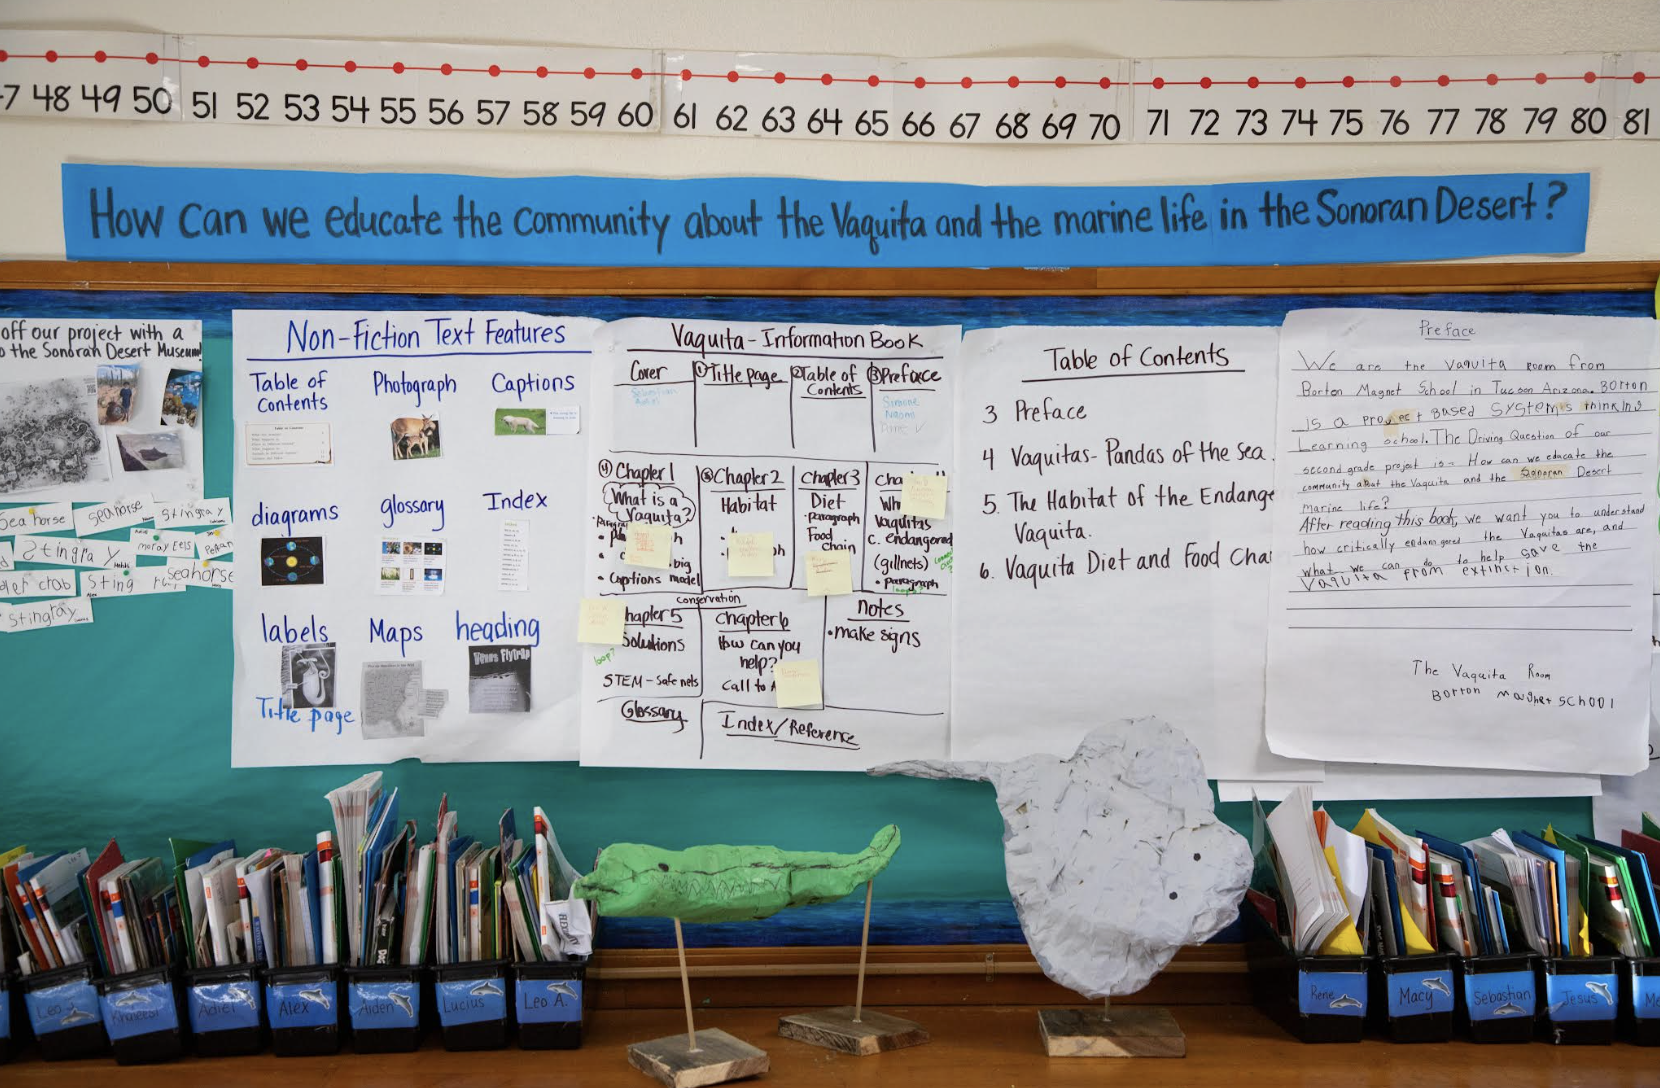 48 49 50 51 52 53 54 55 56 57 58 59 60 61 62 63 64 65 66 67 68 69 70 71 72 73 74 75 76 77 78 79 80 81
How can we educate the community about the Vaquita and the marine life in the Sonoran Desert?
off our project with a
the Sonoran Desert Museum!
Sea horse
seahorse
stingray
Stingray
moray eels
crab
Sting
seahorse
Stingray
Non-Fiction Text Features
Table of
Contents
Photograph
Captions
diagrams
glossary
Index
labels
Maps
heading
Venus Flytrap
Title page
Vaquita-Information Book
Cover
Sebastian
① Title page
② Table of
Contents
③ Preface
Simone
Naomi
④ Chapter 1
What is a
Vaquita?
big
• Captions model
⑤ Chapter 2
Habitat
Chapter 3
Diet
• paragraph
Food
Chain
Cha
Wh
Vaquitas
c. endangered
(gillnets)
• paragraph
conservation
hapter 5
Solutions
loop?
STEM-safe nets
Chapter 6
How can you
help?
Call to
Notes
• make signs
Glossary
Index/Reference
Table of Contents
3 Preface
4 Vaquitas- Pandas of the Sea
5. The Habitat of the Endange
Vaquita.
6. Vaquita Diet and Food Chai
Preface
We are the Vaquita room from
Borton Magnet School in Tucson Arizona. Borton
is a project Based Systems thinking
Learning school. The Driving Question of our
second grade project is- How can we educate the
community about the Vaquita and the Sonoran Desert
Marine life?
After reading this book, we want you to understand
how critically endangered the Vaquitas are, and
what we can do to help save the
Vaquita from extinction.
The Vaquita Room
Borton Magnet School
Leo J.
Adriel
Alex
Aiden
Lucius
Leo A.
Rene
Macy
Sebastian
Jesus
Me